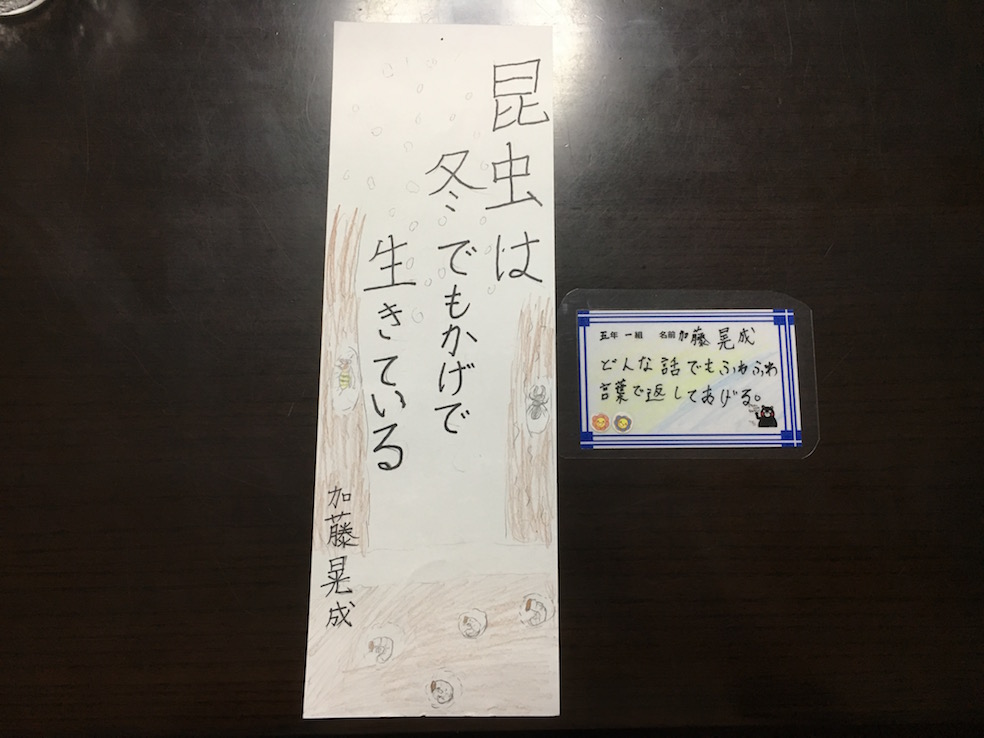 昆虫は
冬でもかげで
生きている
加藤晃成
五年 一組 名前 加藤晃成
どんな話でもふわふわ
言葉で返してあげる。